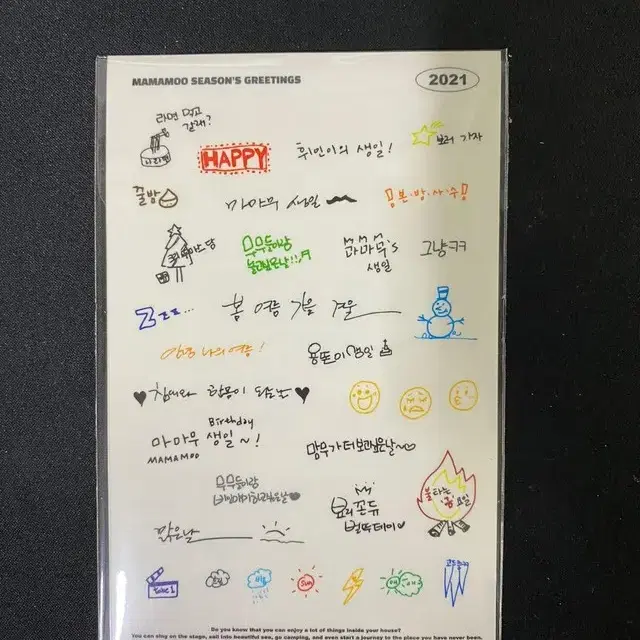 MAMAMOO SEASON'S GREETINGS
2021
라면 먹고
갈래?
HAPPY
휘인이의 생일!
보러 가자
꿀밤
마마무 생일
본·방·사·수
무무들이랑
놀고싶은날!!
마마무's
생일
그냥ㅋㅋ
Zzz...
봄 여름 가을 겨울
안녕 나의 여름!
용똔이 생일
침대와 한몸이 되는 날
마마무
Birthday
생일~!
MAMAMOO
맘무가 더 보고싶은날~
무무들이랑
맑은날
불타는
금요일
SUN
Do you know that you can enjoy a lot of things inside your house?
You can sing on the stage, sail into beautiful sea, go camping, and even start a journey to the place you have never been.